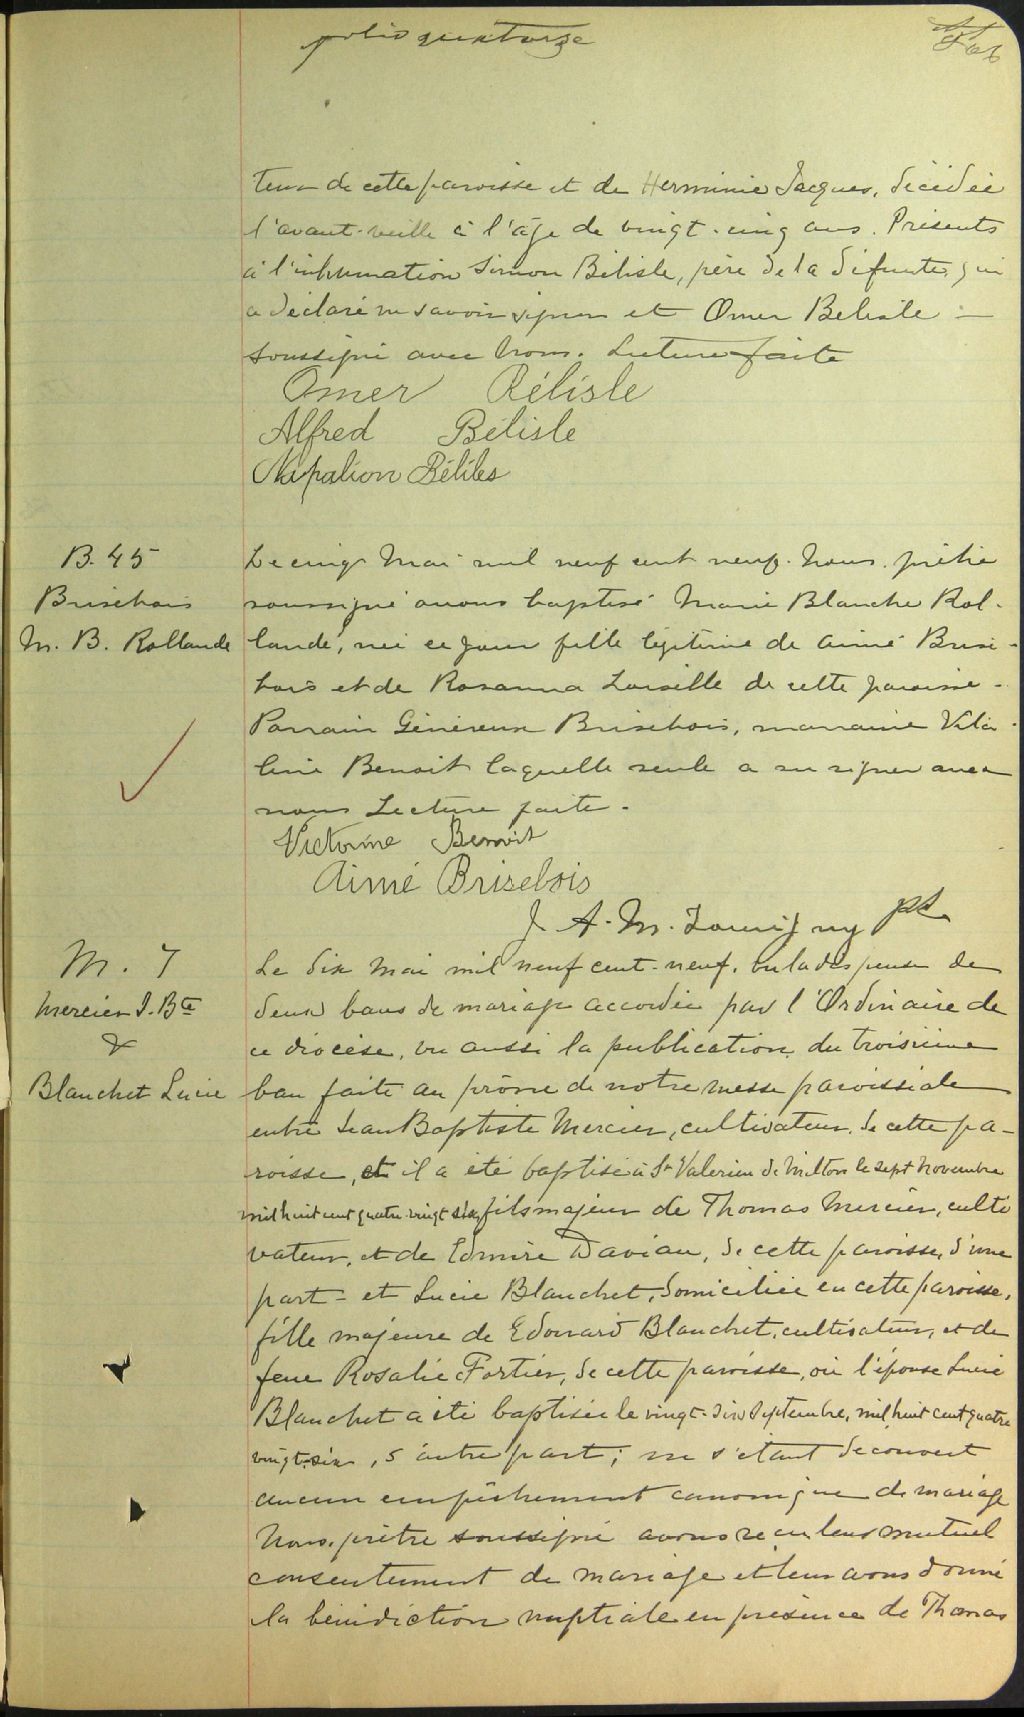 folio quatorze
teur de cette paroisse et de Herminie Jacques, décédée
l'avant-veille à l'âge de vingt-cinq ans. Présents
à l'inhumation Simon Bélisle, père de la défunte, qui
a déclaré ne savoir signer et Omer Belisle
soussigné avec nous. Lecture faite
Omer Bélisle
Alfred Bélisle
Napalion Béliles
B. 45
Brisebois
M. B. Rollande
Le cinq Mai mil neuf cent neuf. Nous prêtre
soussigné avons baptisé Marie Blanche Rol-
lande, née ce jour fille légitime de Aimé Brise-
bois et de Rosanna Loiselle de cette paroisse -
Parrain Généreux Brisebois, marraine
Benoit laquelle seule a su signer avec
nous Lecture faite -
Victorine Benoit
Aimé Brisebois
J. A. M. Lourigny pt
M. 7
Mercier J. Bte
&
Blanchet Lucie
Le dix Mai mil neuf cent-neuf. vu la dispense de
deux bans de mariage accordée par l'Ordinaire de
ce diocèse, vu aussi la publication du troisième
ban faite au prône de notre messe paroissiale
entre Jean Baptiste Mercier, cultivateur, de cette pa-
roisse, et il a été baptisé à St Valerien de Milton le sept Novembre
mil huit cent quatre-vingt six, fils majeur de Thomas Mercier, culti
vateur, et de Edmire Daviau, de cette paroisse, d'une
part - et Lucie Blanchet, domiciliée en cette paroisse,
fille majeure de Edouard Blanchet, cultivateur, et de
feue Rosalie Fortier, de cette paroisse, où l'épouse Lucie
Blanchet a été baptisée le vingt-six Septembre, mil huit cent quatre
vingt-six, d'autre part; ne s'étant découvert
aucun empêchement canonique de mariage
Nous, prêtre soussigné avons reçu leur mutuel
consentement de mariage et leur avons donné
la bénédiction nuptiale en présence de Thomas